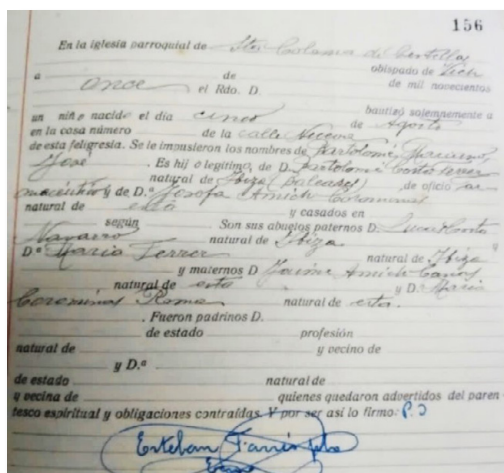 156
En la iglesia parroquial de Sta Coloma de Centellas
a de obispado de Vich
once el Rdo. D. de mil novecientos
bautizó solemnemente a
un niño nacido el día cinco de Agosto
en la casa número de la calle
de esta feligresía. Se le impusieron los nombres de Bartolomé Mariano
José . Es hijo legítimo, de D. Bartolomé Costa Ferrer
natural de Ibiza (Baleares) ,de oficio ar
y de D.ª Josefa Amich Corominas
natural de esta y casados en
según . Son sus abuelos paternos D. Juan Costa
Navarro natural de Ibiza y
D.ª Maria Ferrer natural de Ibiza
y maternos D Jaime Amich
natural de esta y D.ª Maria
Corominas Roma natural de esta.
. Fueron padrinos D.
de estado profesión
natural de y vecino de
y D.ª
de estado natural de
y vecina de quienes quedaron advertidos del paren
tesco espiritual y obligaciones contraídas. Y por ser así lo firmo:
Esteban